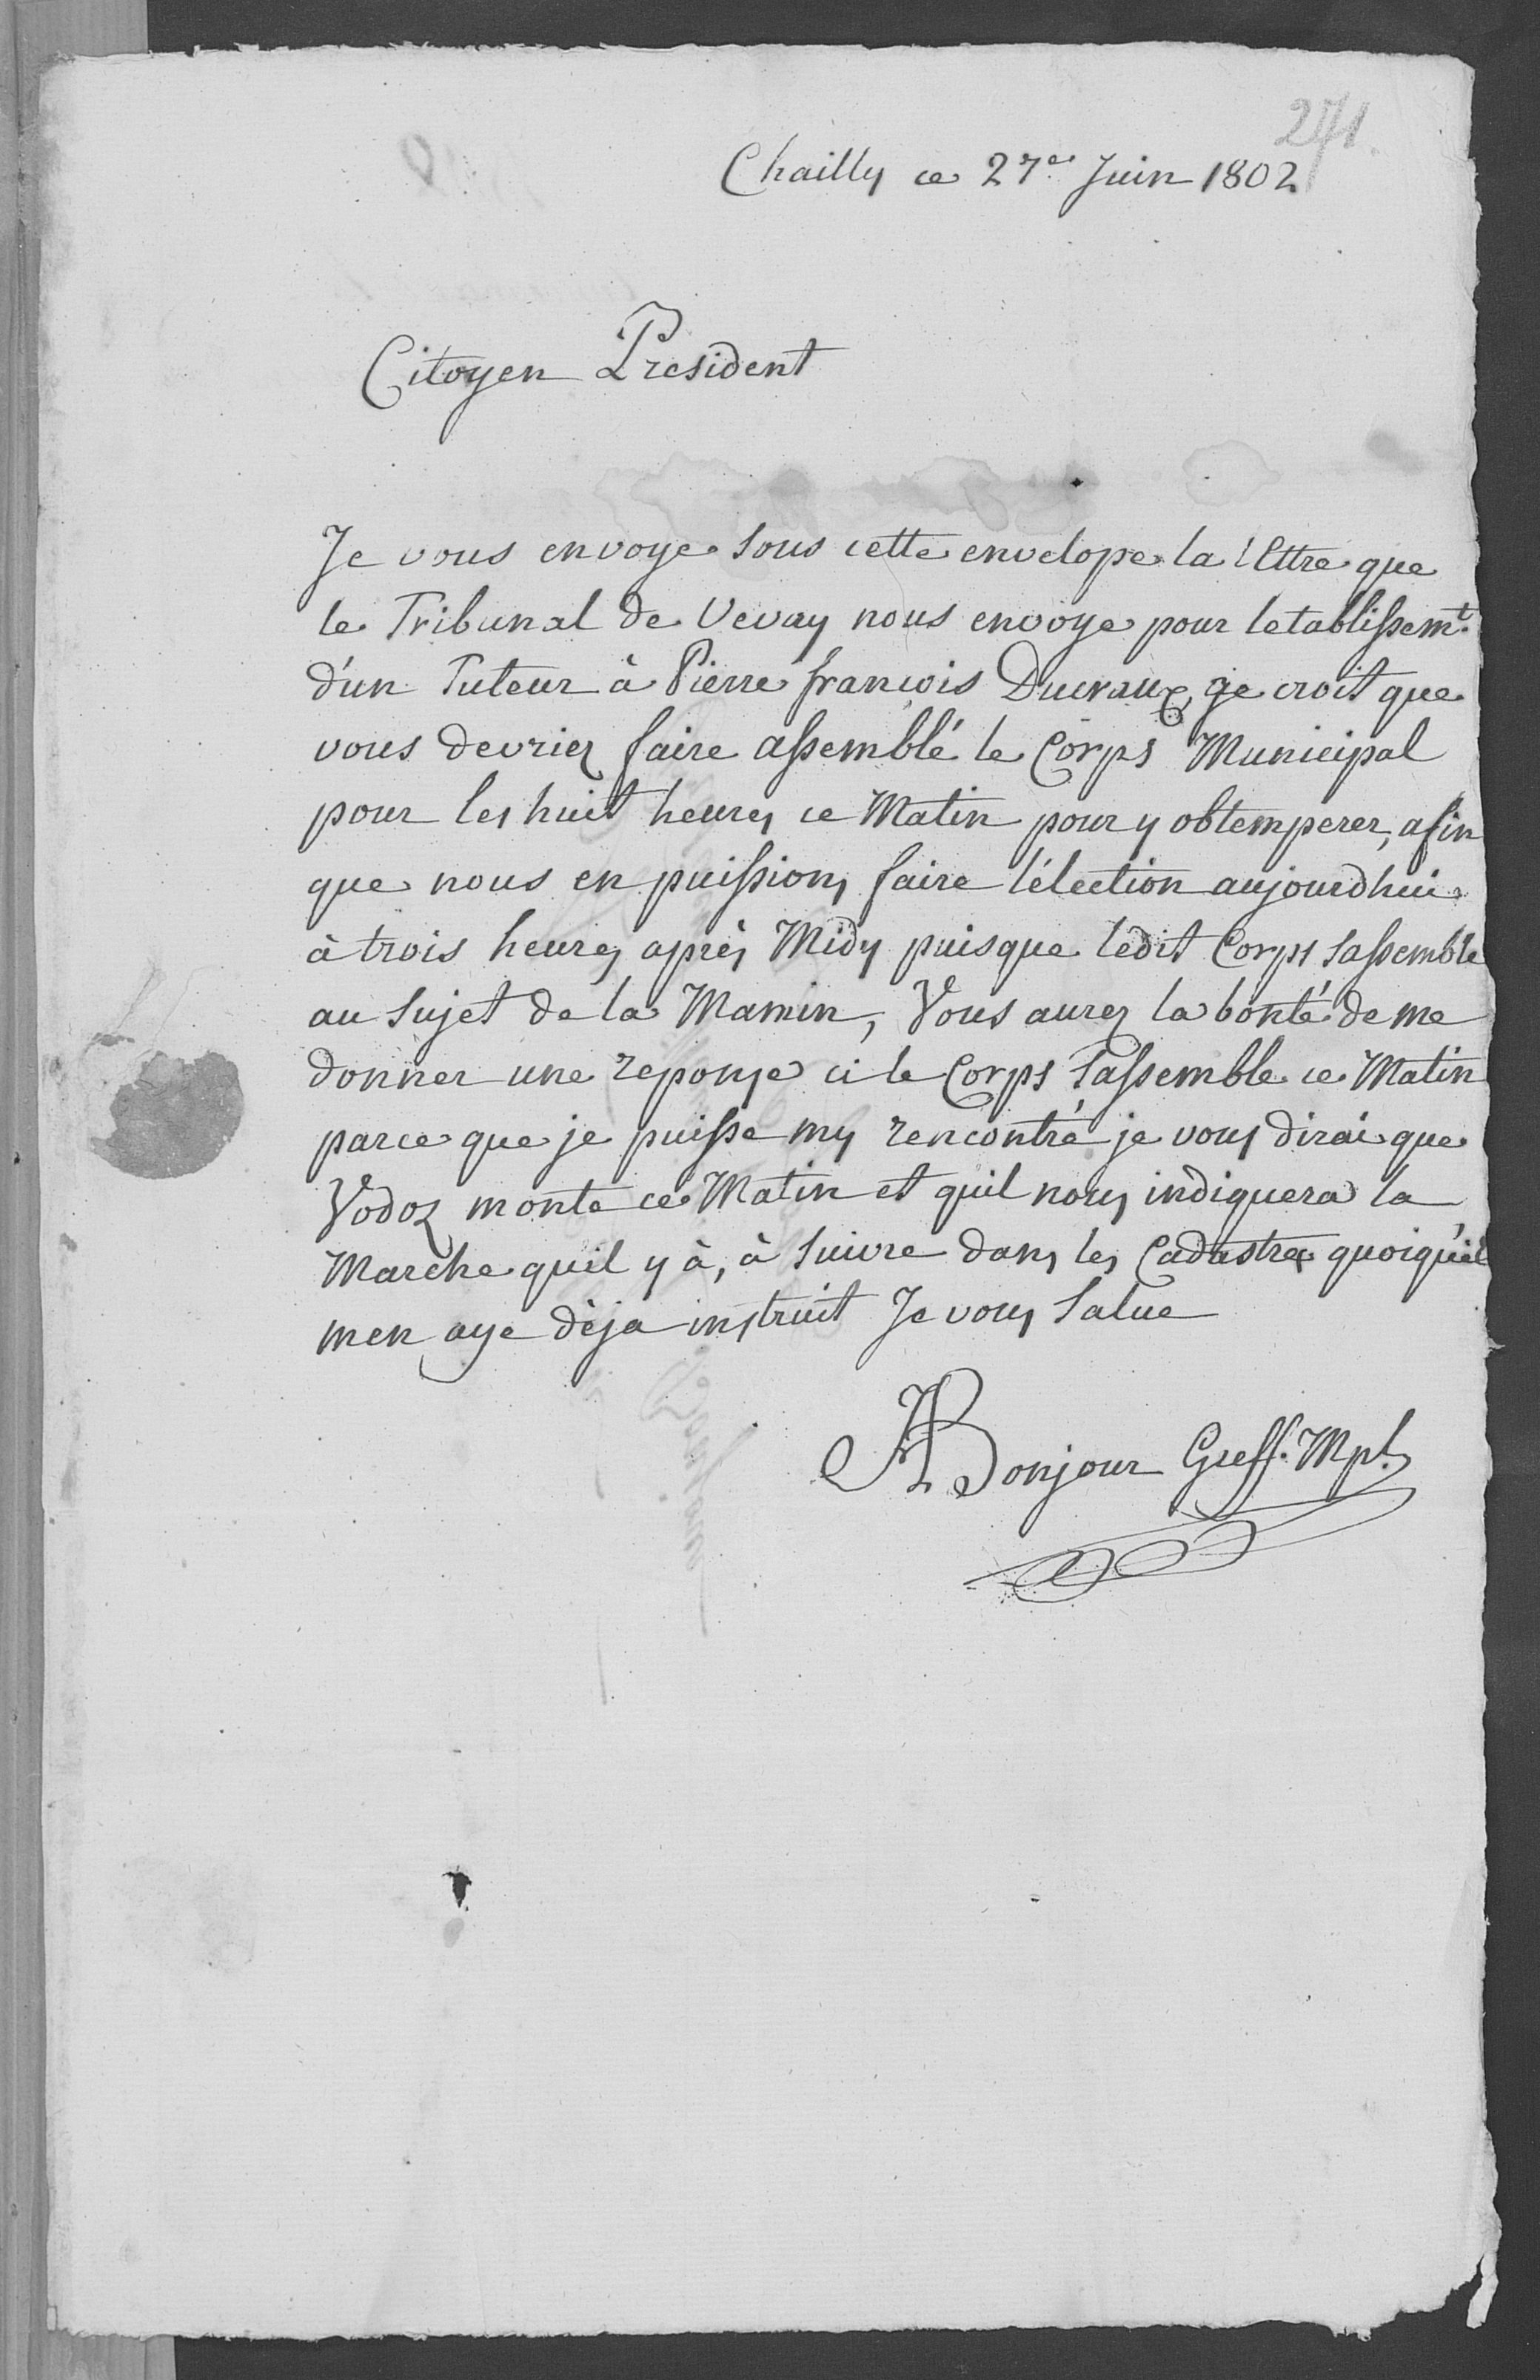 271.
Chailly ce 27e Juin 1802
Citoyen President
Je vous envoye sous cette envelope la lettre que
le Tribunal de Vevay nous envoye pour letablissemt.
d'un Tuteur à Pierre françois Ducraux, je croit que
vous devriez faire assemblé le Corps Municipal
pour les huit heures ce Matin pour y obtemperer, afin
que nous en puissions faire l'élection aujourdhui
à trois heures après Midy puisque ledit Corps sassemble
au sujet de la Mamin, Vous aurez la bonté de me
donner une reponse ci le Corps Sassemble ce Matin
parce que je puisse my rencontré je vous dirai que
Vodoz monte ce Matin et quil nous indiquera la
Marche quil y à, à suivre dans les Cadastres quoiqu'il
men aye dèja instruit Je vous salue
Bonjour Greff. Mpl.